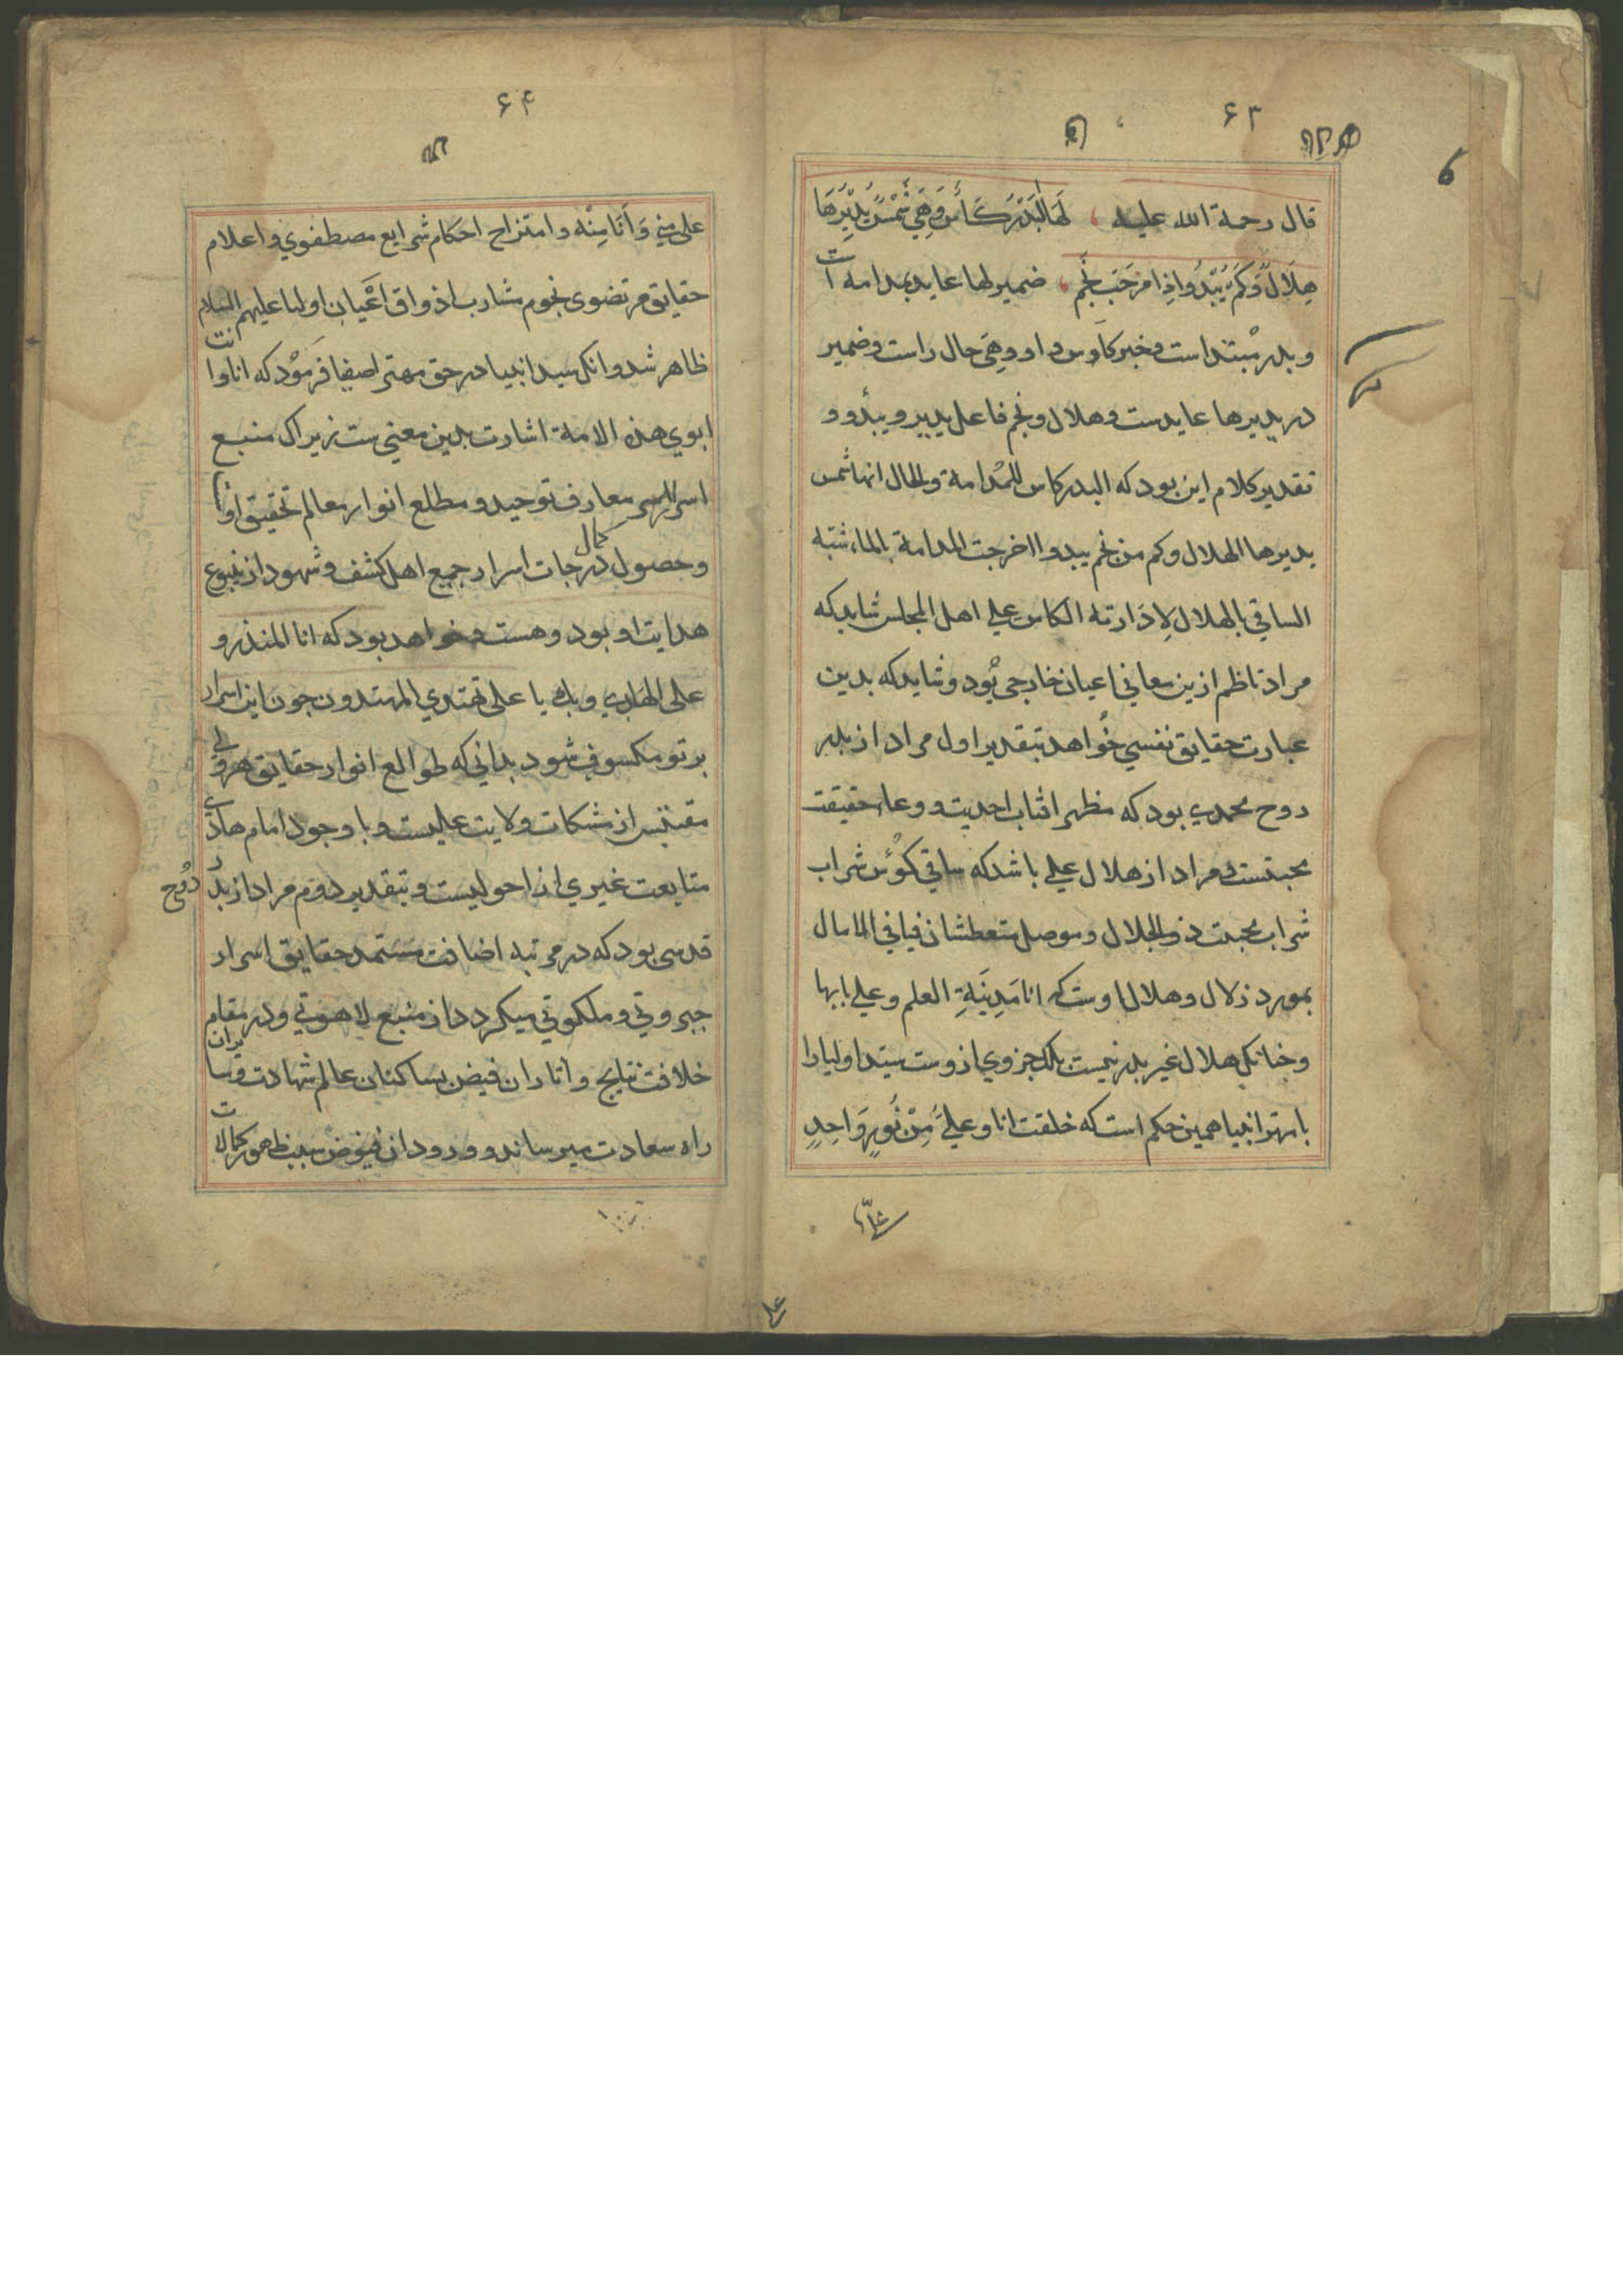 ۶۳
قال رحمة الله علیه ، لَهَا الْبَدْرُ كَأْسٌ وَهِيَ شَمْسٌ يُدِيرُهَا
هِلَالٌ وَكَمْ يَبْدُوا إِذَا مُزِجَتْ نَجْمُ ، ضمیر لها عاید بمدامه است
و بدر مبتداست و خبر کاوس و او وهی حال راست و ضمیر
در یدیرها عایدست و هلال و نجم فاعل یدیر و یبدو و
تقدیر کلام این بود که البدر کاس للمدامة والحال انها شمس
یدیرها الهلال وکم من نجم یبدوا اخرجت المدامة بالماء شبّه
الساقی بالهلال لِاِدَارته الکاس علی اهل المجلس شاید که
مراد ناظم ازین معانی اعیان خارجی بُود و شاید که بدین
عبارت حقایق نفسی خُواهد بتقدیر اول مراد از بدر
روح محمدی بود که مظهر اثاب احدیت و وعاء حقیقت
محبتست و مراد از هلال علی باشد که ساقی کوُس شراب
شراب محبت ذوالجلال و موصل متعطشان فیافی الامال
بمورد زلال و هلال اوست که انا مَدِینَةِ العلم و علی بابها
و چنانک هلال غیر بدر نیست بلک جزوی ازوست سیّد اولیا را
با مهتر انبیا همین حکم است که خلقت انا و علیَ مِنْ نُورٍ وَاحِدٍ
۶۴
علی منی وَ أَنَا مِنْه و امتزاج احکام شرایع مصطفوی و اعلام
حقایق مرتضوی نجوم مشارب اذواق اَعْیان اولیا علیهم السلام
ظاهر شد و انک سید انبیا در حق مهتر اصفیا فَرمُود که انا وانت
ابوی هذه الامة اشارت بدین معنی ست زیراک منبع
اسرار معارف توحید و مطلع انوار معالم تحقیق اوا
و حصول کمال درجات اسرار جمیع اهل کشف و شهود از ینبوع
هدایت او بود و هست و خواهد بود که انا المنذر و
علی الهادی و بک یا علی تهتدی المهتدون چون این اسرار
بر تو مکسوف شود بدانی که طوالع انوار حقایق هر ولی
مقتبس از مشکات ولایت علیست و با وجود امام هادی
متابعت غیری از احولیست و بتقدیر دوم مراد از بدر رُوح
قدسی بود که در مرتبه اضافت مستمد حقایق اسرار
جبروتی و ملکوتی میکردد از منبع لاهوتی و در مقام
خلافت نتایج و اثار ان فیض بساکنان عالم شهادت و سایران
راه سعادت میرساند و ورود ان فیوض سبب ظهور کمالات